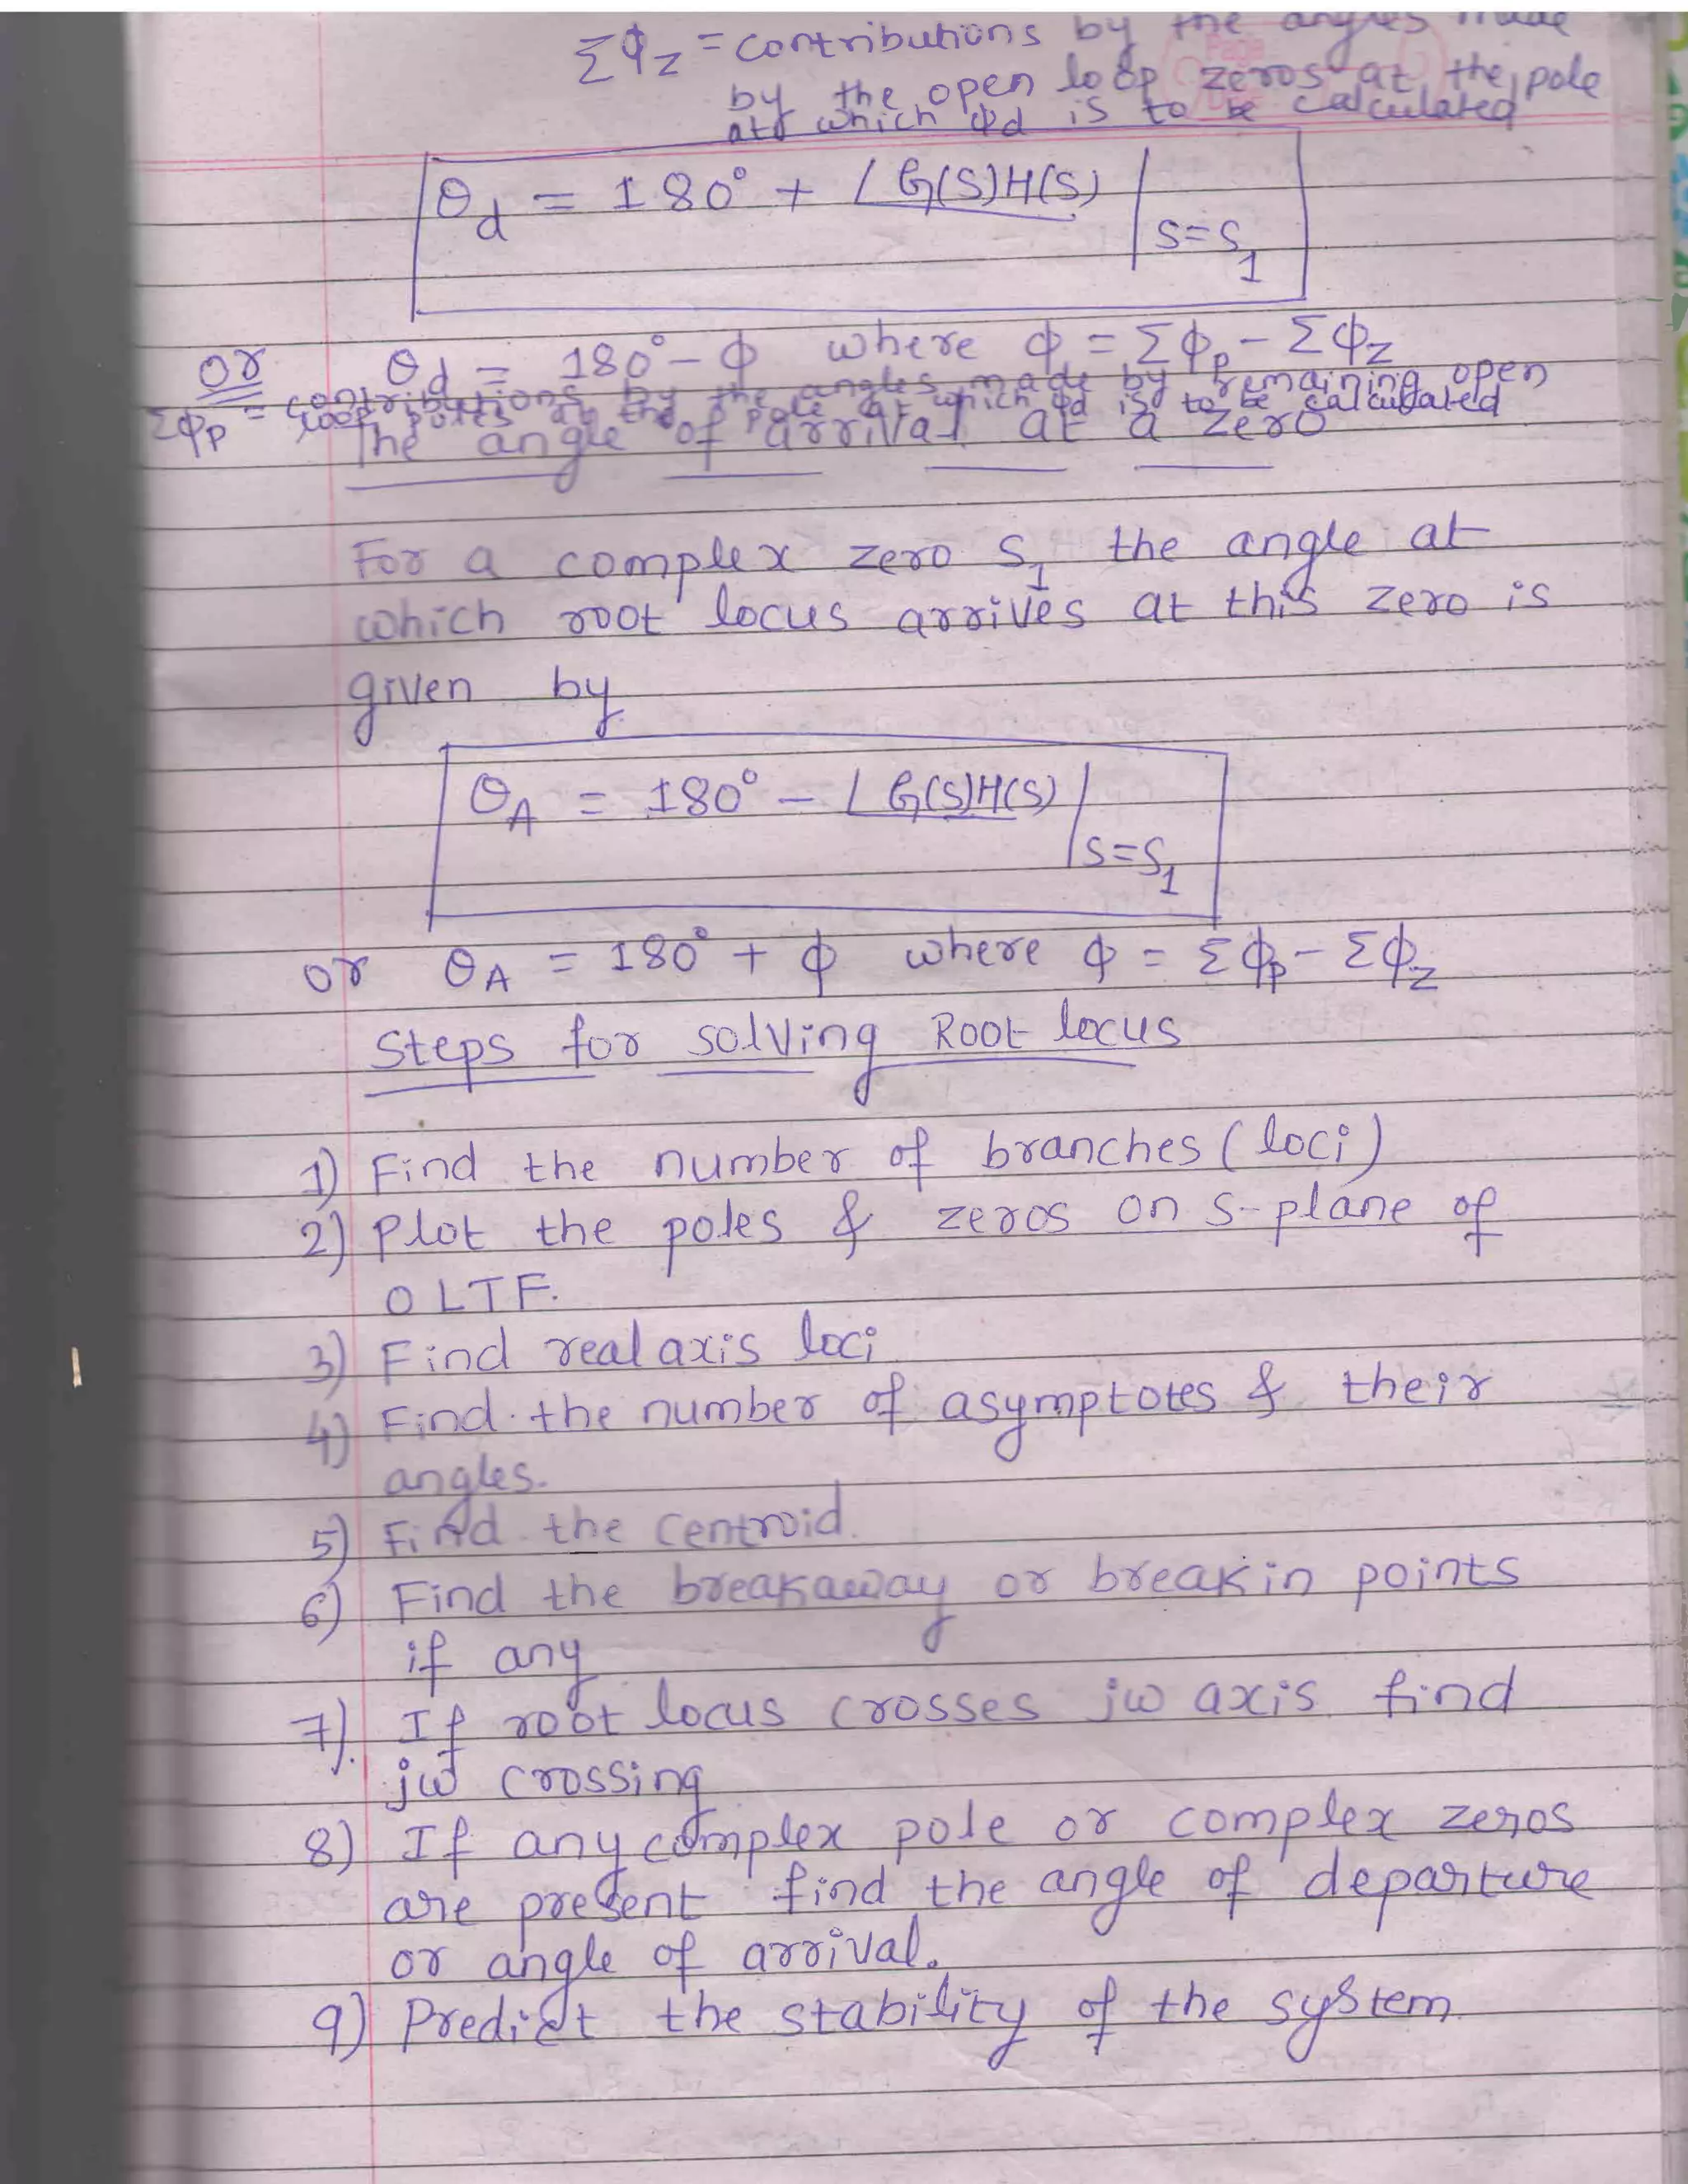 ΣΦz = contributions by the angles made
by the open loop zeros at the pole
at which Φd is to be calculated
θd = 180° + ∠G(S)H(S) |
s=s1
or θd = 180° - Φ where Φ = ΣΦp - ΣΦz
ΣΦp = contributions by the angles made by remaining open
loop poles at the pole at which Φd is to be calculated
The angle of arrival at a zero
For a complex zero S1 the angle at
which root locus arrives at this zero is
given by
θA = 180° - ∠G(S)H(S) |
s=s1
or θA = 180° + Φ where Φ = ΣΦp - ΣΦz
Steps for solving Root locus
1) Find the number of branches (loci)
2) Plot the poles & zeros on s-plane of
OLTF.
3) Find real axis loci
4) Find the number of asymptotes & their
angles.
5) Find the Centroid.
6) Find the breakaway or breakin points
if any
7). If root locus crosses jw axis find
jw crossing
8) If any complex pole or complex zeros
are present find the angle of departure
or angle of arrival.
9) Predict the stability of the system